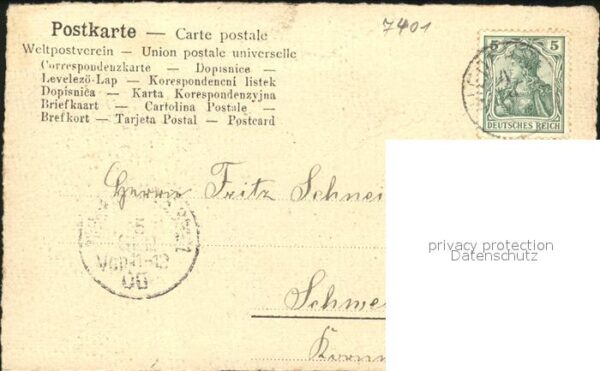 7401
Postkarte — Carte postale
Weltpostverein — Union postale universelle
Correspondenzkarte — Dopisnice —
Levelező-Lap — Korespondencni listek
Dopisnica — Karta Korespondenzyjna
Briefkaart — Cartolina Postale —
Brefkort — Tarjeta Postal — Postcard
5 5
DEUTSCHES REICH
Herrn Fritz Schnei
privacy protection
Datenschutz
Schwei